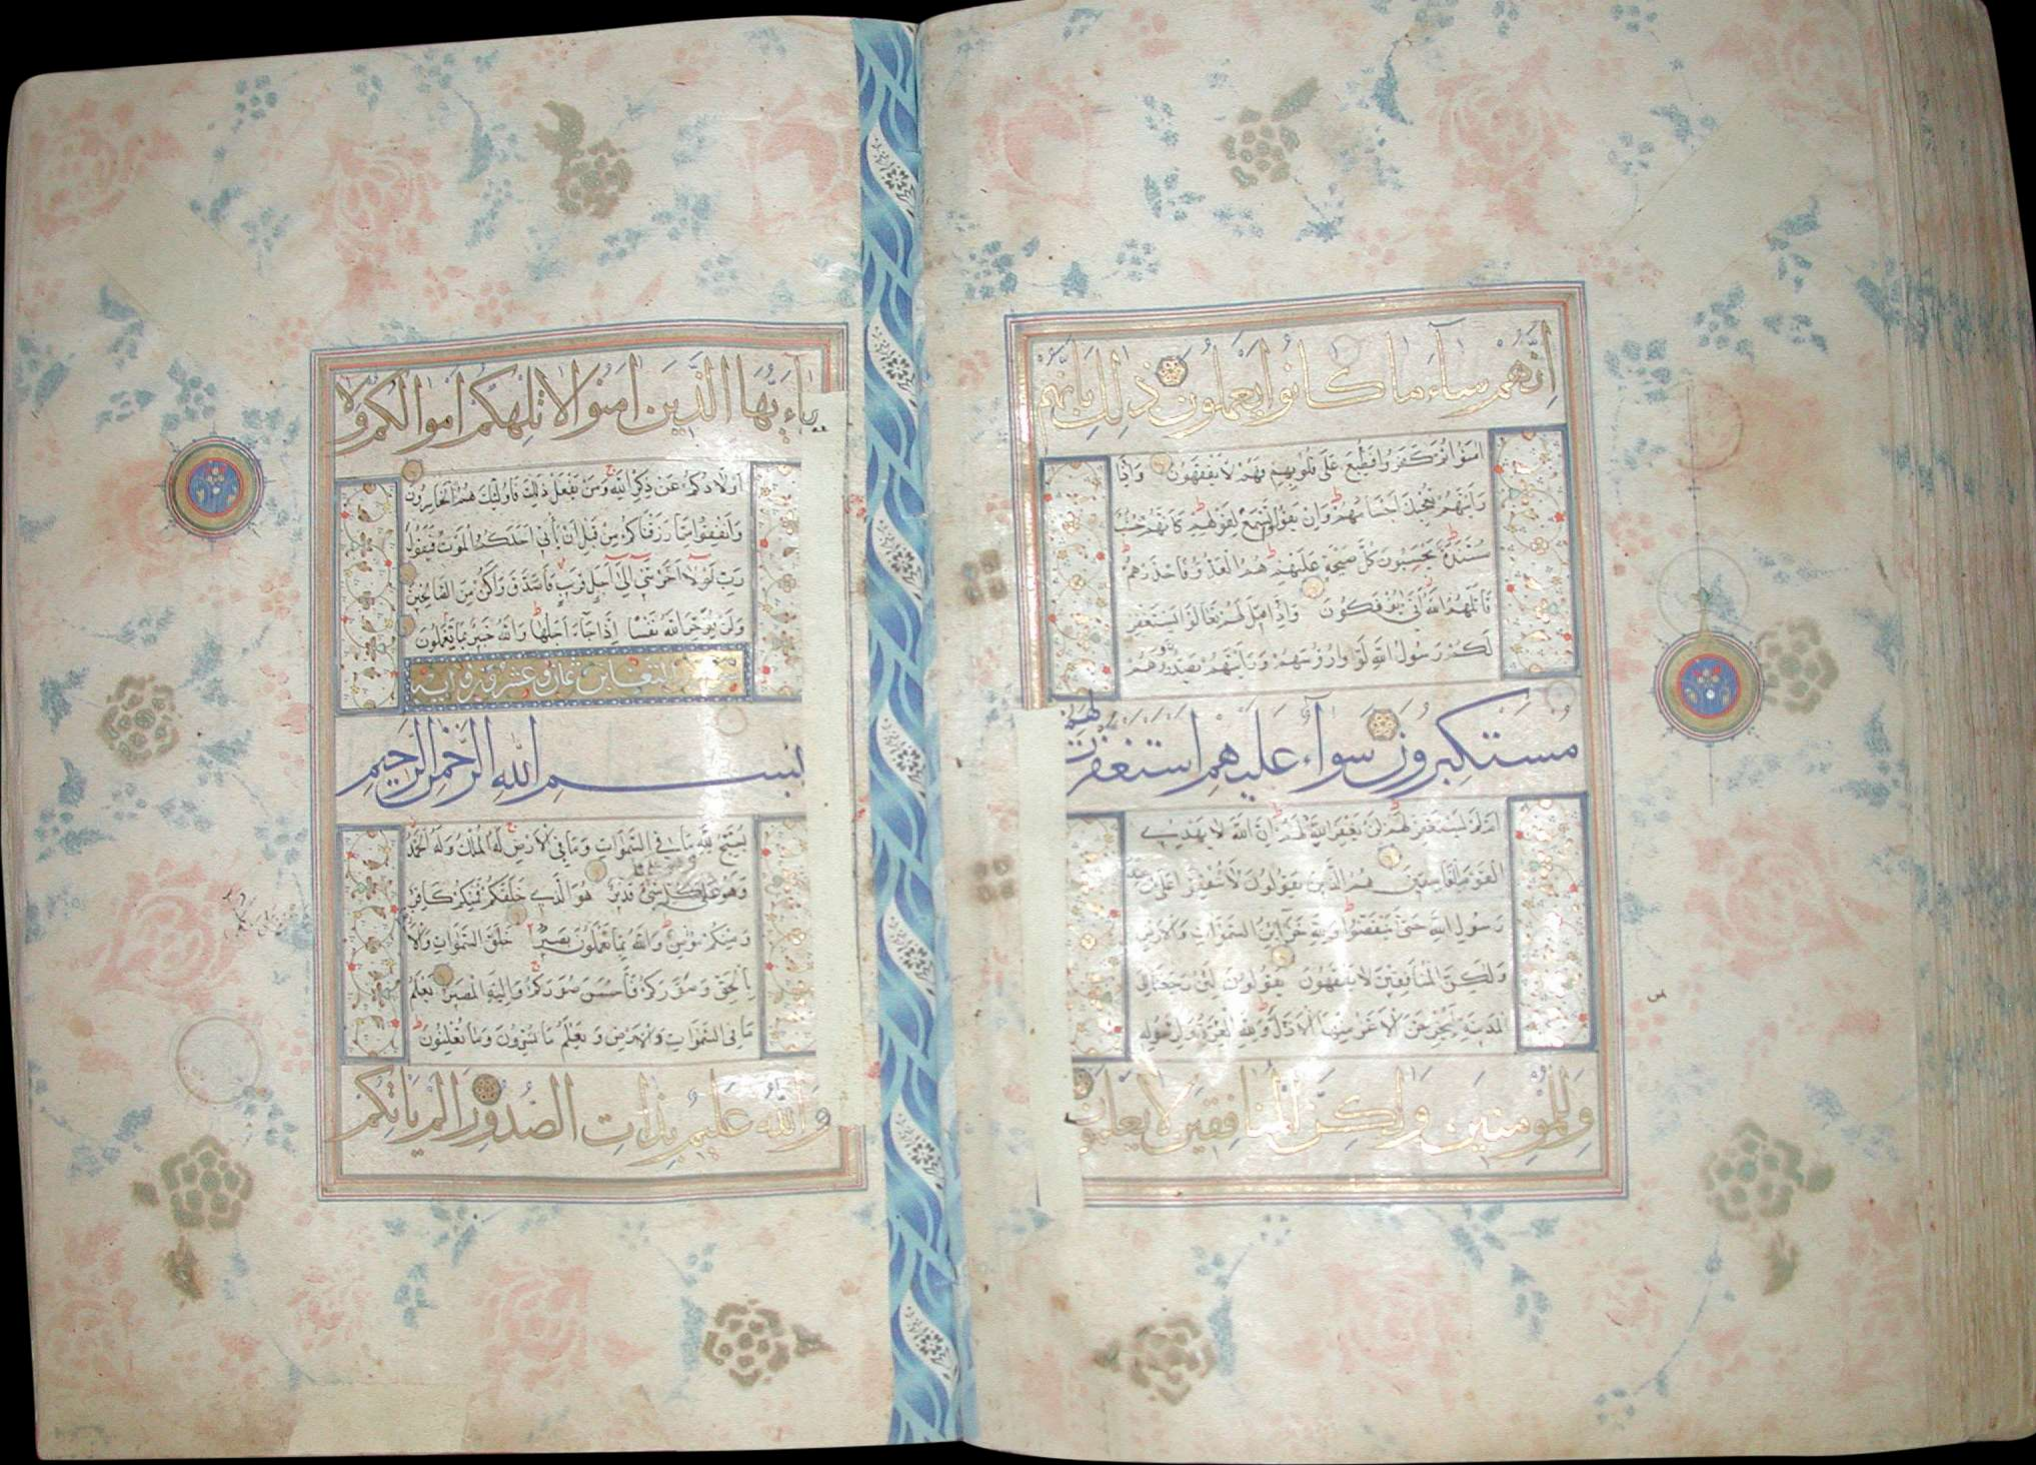 إنهم ساء ما كانوا يعملون ذلك بأنهم
امنوا ثم كفروا فطبع على قلوبهم فهم لا يفقهون وإذا
رأيتهم تعجبك أجسامهم وإن يقولوا تسمع لقولهم كأنهم خشب
مسندة يحسبون كل صيحة عليهم هم العدو فاحذرهم
قاتلهم الله أنى يؤفكون وإذا قيل لهم تعالوا يستغفر
لكم رسول الله لووا رؤسهم ورأيتهم يصدون وهم
مستكبرون سواء عليهم استغفرت لهم
ام لم تستغفر لهم لن يغفر الله لهم إن الله لا يهدي
القوم الفاسقين هم الذين يقولون لا تنفقوا على من عند
رسول الله حتى ينفضوا ولله خزائن السموات والأرض
ولكن المنافقين لا يفقهون يقولون لئن رجعنا إلى
المدينة ليخرجن الأعز منها الأذل ولله العزة ولرسوله
وللمؤمنين ولكن المنافقين لا يعلمون
ياءيها الذين امنوا لا تلهكم أموالكم ولا
أولادكم عن ذكر الله ومن يفعل ذلك فأولئك هم الخاسرون
وانفقوا مما رزقناكم من قبل أن يأتي أحدكم الموت فيقول
رب لولا أخرتني إلى أجل قريب فاصدق وأكن من الصالحين
ولن يؤخر الله نفسا إذا جاء أجلها والله خبير بما تعملون
سورة التغابن ثمان وعشرون اية
بسم الله الرحمن الرحيم
يسبح لله ما في السموات وما في الأرض له الملك وله الحمد
وهو على كل شيء قدير هو الذي خلقكم فمنكم كافر
ومنكم مؤمن والله بما تعملون بصير خلق السموات والأ
بالحق وصوركم فأحسن صوركم وإليه المصير يعلم
ما في السموات والأرض ويعلم ما تسرون وما تعلنون
والله عليم بذات الصدور ألم يأتكم